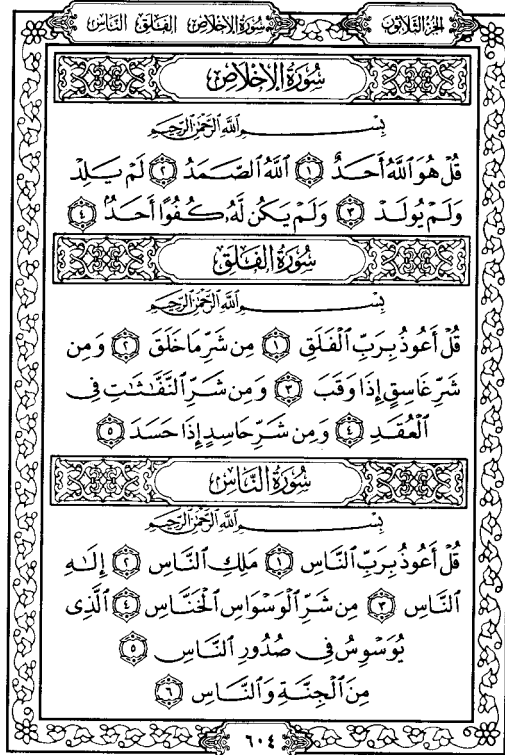 الجزء الثلاثون سورة الإخلاص الفلق الناس
سُورَةُ الإِخْلَاصِ
بِسْمِ ٱللَّهِ ٱلرَّحْمَٰنِ ٱلرَّحِيمِ
قُلْ هُوَ ٱللَّهُ أَحَدٌ ١ ٱللَّهُ ٱلصَّمَدُ ٢ لَمْ يَلِدْ
وَلَمْ يُولَدْ ٣ وَلَمْ يَكُن لَّهُۥ كُفُوًا أَحَدٌۢ ٤
سُورَةُ الْفَلَقِ
بِسْمِ ٱللَّهِ ٱلرَّحْمَٰنِ ٱلرَّحِيمِ
قُلْ أَعُوذُ بِرَبِّ ٱلْفَلَقِ ١ مِن شَرِّ مَا خَلَقَ ٢ وَمِن
شَرِّ غَاسِقٍ إِذَا وَقَبَ ٣ وَمِن شَرِّ ٱلنَّفَّٰثَٰتِ فِى
ٱلْعُقَدِ ٤ وَمِن شَرِّ حَاسِدٍ إِذَا حَسَدَ ٥
سُورَةُ النَّاسِ
بِسْمِ ٱللَّهِ ٱلرَّحْمَٰنِ ٱلرَّحِيمِ
قُلْ أَعُوذُ بِرَبِّ ٱلنَّاسِ ١ مَلِكِ ٱلنَّاسِ ٢ إِلَٰهِ
ٱلنَّاسِ ٣ مِن شَرِّ ٱلْوَسْوَاسِ ٱلْخَنَّاسِ ٤ ٱلَّذِى
يُوَسْوِسُ فِى صُدُورِ ٱلنَّاسِ ٥
مِنَ ٱلْجِنَّةِ وَٱلنَّاسِ ٦
٦٠٤